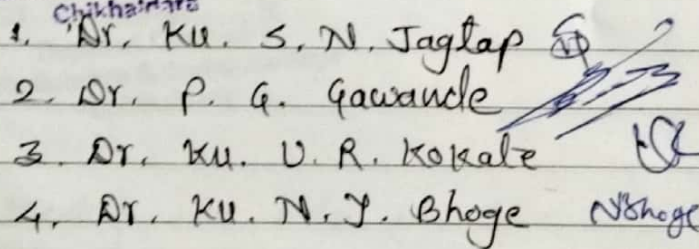 Chikhaldara
1. Dr. Ku. S. N. Jagtap
2. Dr. P. G. Gawande
3. Dr. Ku. U. R. Kokate
4. Dr. Ku. N. Y. Bhoge NBhoge